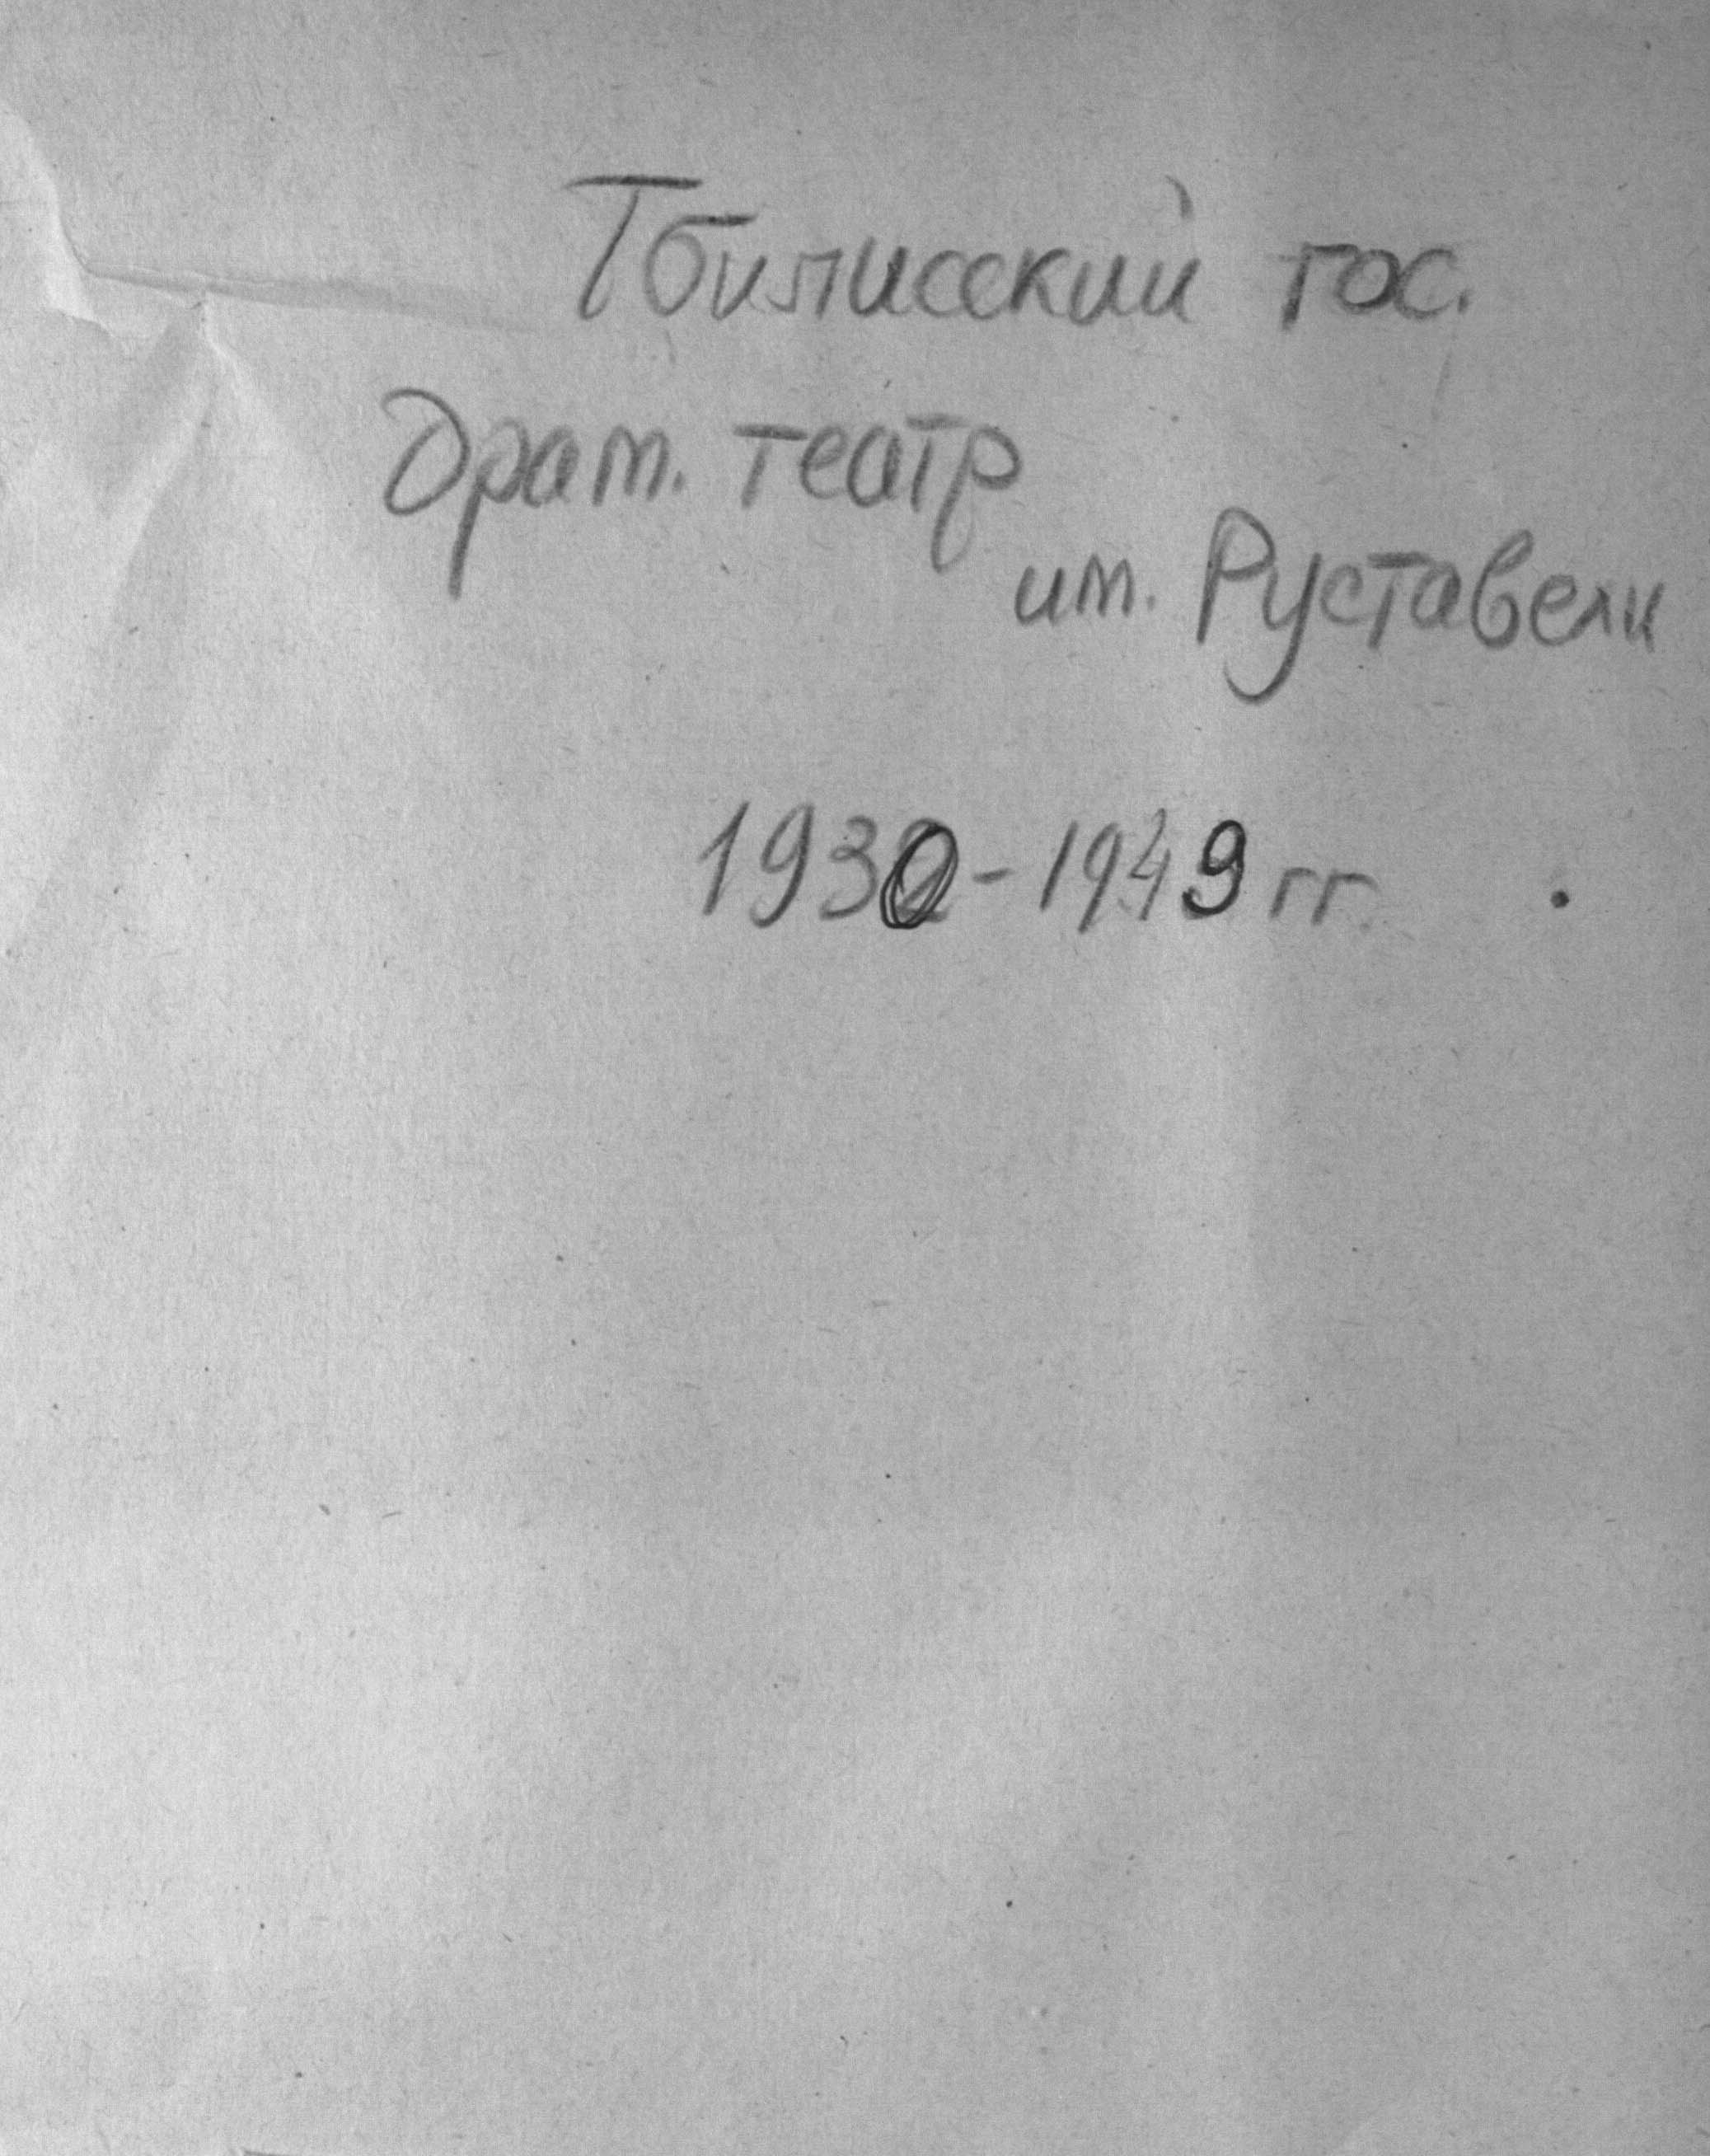 Тбилисский гос.
драт. театр
им. Руставели
1930-1949 гг.